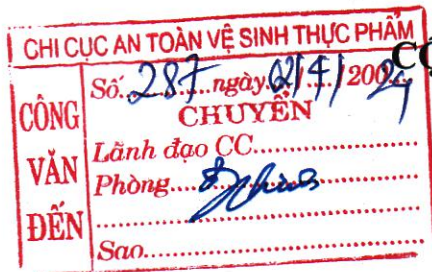 CHI CỤC AN TOÀN VỆ SINH THỰC PHẨM
CÔNG VĂN ĐẾN
Số 287 ngày 02/4/2024
CHUYỂN
Lãnh đạo CC
Phòng
Sao